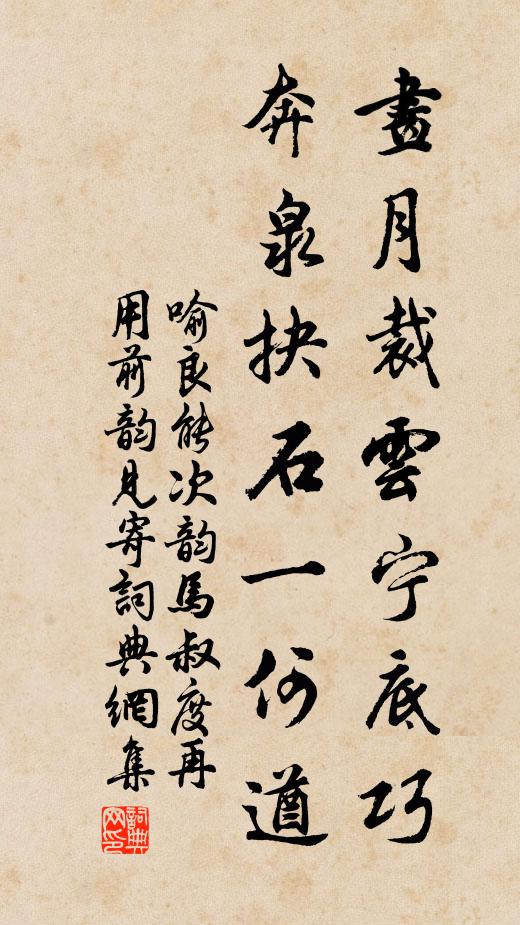 畫月裁雲宁底巧
奔泉抉石一何遒
喻良能次韵馬叔度再
用前韵見寄詞典網集
詞典
网印